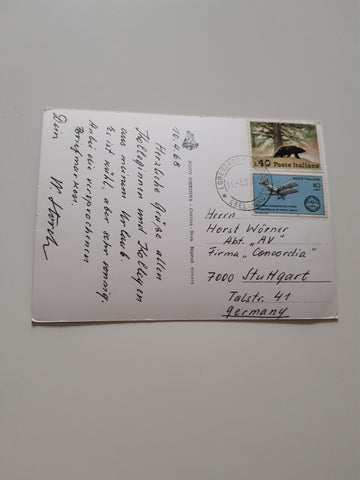 10.4.68
Herzliche Grüße allen
Kolleginnen und Kollegen
aus meinem Urlaub.
Es ist kühl, aber sehr sonnig.
Anbei die versprochenen
Briefmarken.
Dein
W.
FOTO GHEDINA - Cortina
40 Poste Italiane
POSTE ITALIANE
40
Herrn
Horst Wörner
Abt. „AV"
Firma „Concordia"
7000 Stuttgart
Talstr. 41
Germany